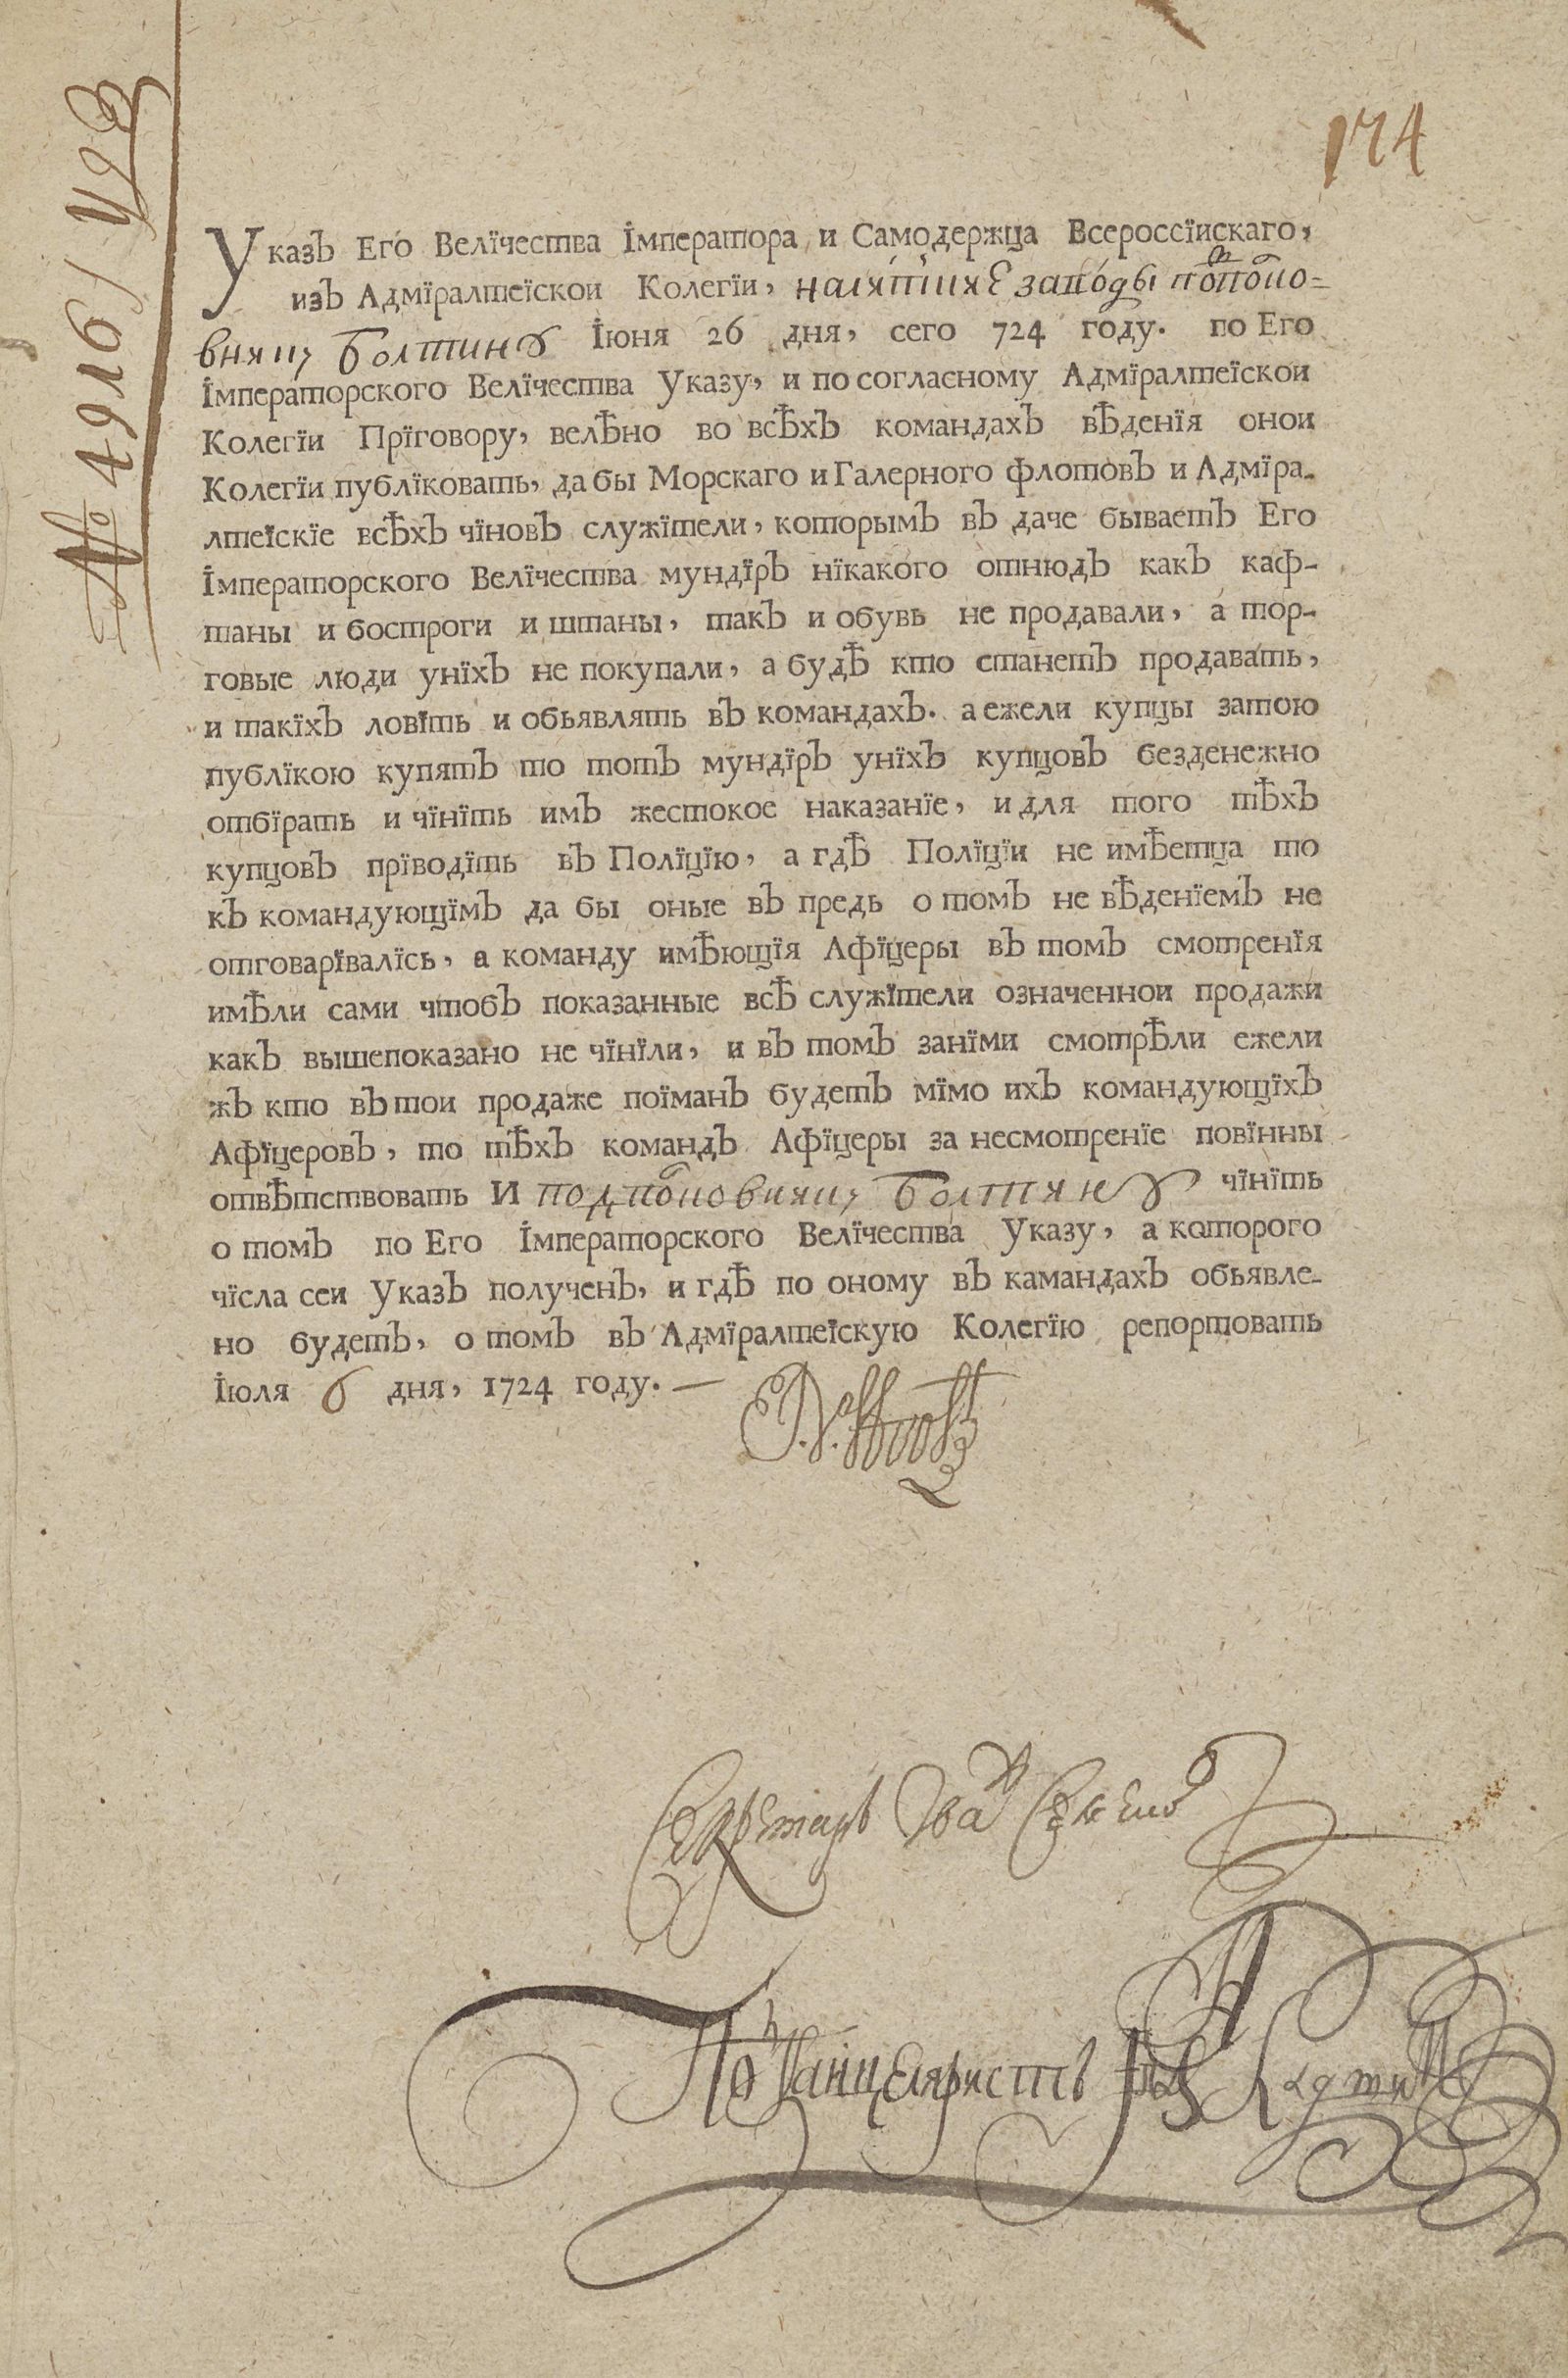 174
Указъ Его Велїчества Імператора и Самодержца Всероссїискаго,
изъ Адмїралтеїскои Колегїи, заводы
Болтину Іюня 26 дня, сего 724 году. по Его
Імператорского Велїчества Указу, и по согласному Адмїралтеїскои
Колегїи Прїговору, велѣно во всѣхъ командахъ вѣденїя онои
Колегїи публїковать, да бы Морскаго и Галерного флотовъ и Адмїра-
лтеїскїе всѣхъ чїновъ служїтели, которымъ въ даче бываетъ Его
Імператорского Велїчества мундїръ нїкакого отнюдъ какъ каф-
таны и бостроги и штаны, такъ и обувь не продавали, а тор-
говые люди унїхъ не покупали, а будѣ кто станетъ продавать,
и такїхъ ловїть и обьявлять въ командахъ. а ежели купцы затою
публїкою купятъ то тотъ мундїръ унїхъ купцовъ безденежно
отбїрать и чїнїть имъ жестокое наказанїе, и для того тѣхъ
купцовъ прїводїть въ Полїцїю, а гдѣ Полїцїи не имѣетца то
къ командующїмъ да бы оные въ предь о томъ не вѣденїемъ не
отговарївалїсь, а команду имѣющїя Афїцеры въ томъ смотренїя
имѣли сами чтобъ показанные всѣ служїтели означеннои продажи
какъ вышепоказано не чїнїли, и въ томъ занїми смотрѣли ежели
жъ кто въ тои продаже поїманъ будетъ мїмо ихъ командующїхъ
Афїцеровъ, то тѣхъ командъ Афїцеры за несмотренїе повїнны
отвѣтствовать И подполковнику Болтину чїнїть
о томъ по Его Імператорского Велїчества Указу, а которого
чїсла сеи Указъ полученъ, и гдѣ по оному въ камандахъ обьявле-
но будетъ, о томъ въ Адмїралтеїскую Колегїю репортовать
Іюля 6 дня, 1724 году. —
Секретарь Іван
Подканцеляристъ
№ 4916